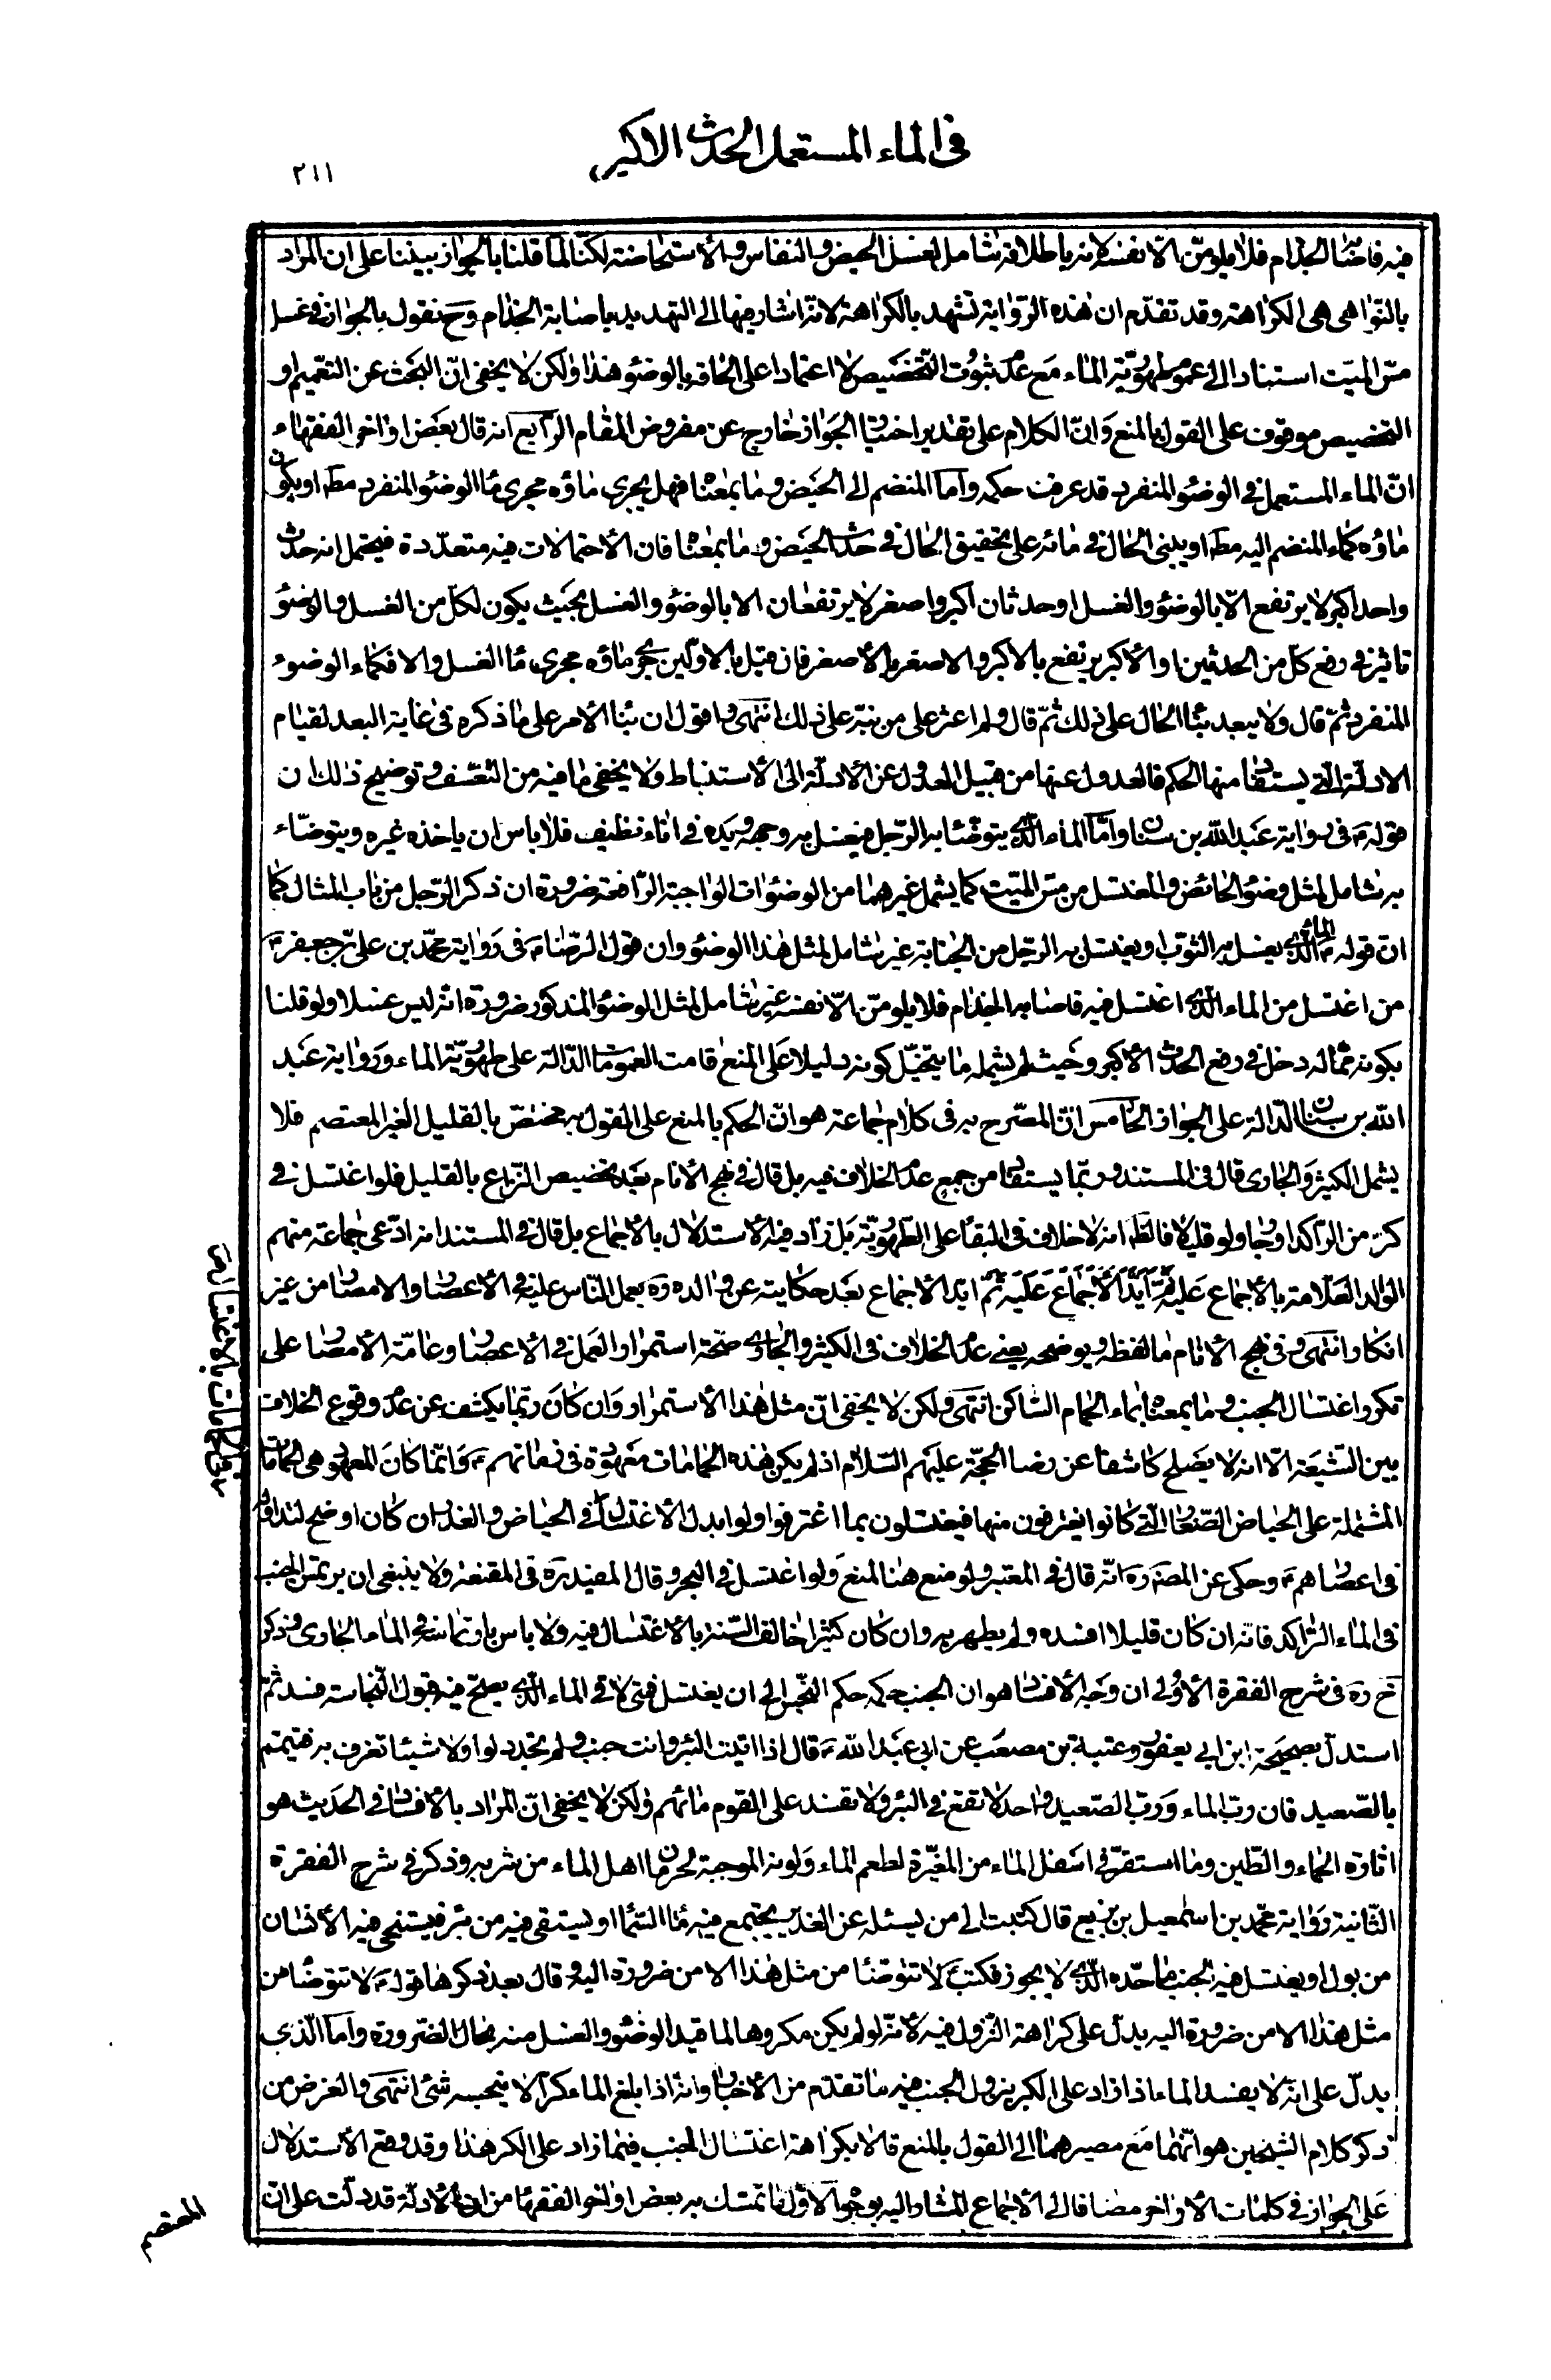 في الماء المستعمل الحدث الاكبر
٢١١
فيه فاصابه الجذام فلا يلومنّ الّا نفسه لانه باطلاقه شامل لغسل الحيض والنفاس والاستحاضة لكنّا لما قلنا بالجواز بيّنّا على ان المراد
بالنّواهى هى الكراهة وقد تقدّم ان هذه الرّواية تشهد بالكراهة لانّه اشار فيها الى التهديد باصابة الجذام وح نقول بالجواز في غسل
مسّ الميّت استنادا الى عموم طهوريّة الماء مع عدم ثبوت التّخصيص لا اعتمادا على الحاقه بالوضوء هذا ولكن لا يخفى انّ البحث عن التعميم او
التخصيص موقوف على القول بالمنع وانّ الكلام على تقدير اختيار الجواز خارج عن مفروض المقام الرّابع انه قال بعض اواخر الفقهاء
انّ الماء المستعمل في الوضوء المنفرد قد عرفت حكمه وامّا المنضم الى الحيض وما بمعناه فهل يجرى ماؤه مجرى ماء الوضوء المنفرد مط او يكون
ماؤه كماء المنضم اليه مط او يبنى الحال في مائه على تحقيق الحال في حدث الحيض وما بمعناه فان الاحتمالات فيه متعدّدة فيحتمل انه حدث
واحد اكبر لا يرتفع الّا بالوضوء والغسل او حدثان اكبر واصغر لا يرتفعان الا بالوضوء والغسل بحيث يكون لكلّ من الغسل والوضوء
تاثير في رفع كلّ من الحدثين او الاكبر يرتفع بالاكبر والاصغر بالاصغر فان قيل بالاوّلين جرى ماؤه مجرى ماء الغسل والا فكماء الوضوء
المنفرد ثمّ قال ولا يبعد بناء الحال على ذلك ثمّ قال ولم اعثر على من نبّه على ذلك انتهى واقول ان بناء الامر على ما ذكره في غاية البعد لقيام
الادلّة الّتي يستفاد منها الحكم فالعدول عنها من قبيل العدول عن الادلّة الى الاستنباط ولا يخفى ما فيه من التعسّف وتوضيح ذلك ان
قوله ع في رواية عبد الله بن سنان وامّا الماء الّذى يتوضّأ به الرّجل فيغسل به وجهه ويده في اناء نظيف فلا باس ان ياخذه غيره ويتوضّاء
به شامل لمثل وضوء الحائض والمغتسل من مسّ الميّت كما يشمل غيرهما من الوضوءات الواجبة الرّافعة ضرورة ان ذكر الرّجل من باب المثال كما
انّ قوله ع الماء الّذى يغسل به الثوب او يغتسل به الرجل من الجنابة غير شامل لمثل هذا الوضوء وان قول الرّضا ع في رواية محمّد بن على بن جعفر ع
من اغتسل من الماء الّذى اغتسل فيه فاصابه الجذام فلا يلومنّ الّا نفسه غير شامل لمثل الوضوء المذكور ضرورة انّه ليس غسلا ولو قلنا
بكونه ممّا له دخل في رفع الحدث الاكبر وحيث لم يشمله ما يتخيّل كونه دليلا على المنع قامت العمومات الدّالة على طهوريّة الماء ورواية عبد
الله بن سنان الدّالة على الجواز الخامس انّ المصرّح به في كلام جماعة هو انّ الحكم بالمنع على القول به مختصّ بالقليل الغير المعتصم فلا
يشمل الكثير والجارى قال في المستند وربّما يستفاد من جمع عدم الخلاف فيه بل قال في نهج الانام بعد تخصيص النّزاع بالقليل فلو اغتسل في
كرّ من الرّاكد او جار ولو قليلا فالظ انه لا خلاف في البقاء على الطّهوريّة بل زاد فيه الاستدلال بالاجماع بل قال في المستند انه ادّعى جماعة منهم
الوالد العلّامة بالاجماع عليه ثمّ ايّد الاجماع عليه ثمّ ايّد الاجماع بعد حكايته عن والده ره بعمل النّاس عليه في الاعصار والامصار من غير
انكار انتهى وفى نهج الانام ما لفظه ويوضحه يعنى عدم الخلاف في الكثير والجارى صحّة استمرار العمل في الاعصار وعامّة الامصار على
تكرر اغتسال الجنب وما بمعناه بماء الحمام الساكن انتهى ولكن لا يخفى انّ مثل هذا الاستمرار وان كان ربّما يكشف عن عدم وقوع الخلاف
بين الشّيعة الّا انه لا يصلح كاشفا عن رضا الحجّة عليهم السّلام اذ لم يكن هذه الحمامات معهودة في زمانهم ع وانّما كان المعهود هى الحمّامات
المشتملة على الحياض الصّغار الّتي كانوا يغترفون منها فيغتسلون بما اغترفوا ولو ابدل الاغتسال في الحياض والغدران كان اوضح لتداوله
في اعصارهم ع وحكى عن المصنّف ره انّه قال في المعتبر ولو منع هنا لمنع ولو اغتسل في البحر وقال المفيد ره في المقنعة ولا ينبغى ان يرتمس الجنب
في الماء الرّاكد فانه ان كان قليلا افسده ولم يطهر به وان كان كثيرا خالف السّنة بالاغتسال فيه ولا باس بارتماسه في الماء الجارى وذكر
خ ره في شرح الفقرة الاولى ان وجه الافساد هو ان الجنب حكمه حكم النّجس الى ان يغتسل فمتى لاقى الماء الّذى يصحّ فيه قبول النّجاسة فسد ثمّ
استدلّ بصحيحة ابن ابى يعفور وعنبسة بن مصعب عن ابى عبد الله ع قال اذا اتيت البئر وانت جنب ولم تجد دلوا ولا شيئا تغرف به فتيمّم
بالصّعيد فان ربّ الماء وربّ الصّعيد واحد لا تقع في البئر ولا تفسد على القوم مائهم ولكن لا يخفى انّ المراد بالافساد في الحديث هو
اثارة الحماء والطّين وما استقرّ في اسفل الماء من المغيّرة لطعم الماء ولونه الموجبة لحرمان اهل الماء من شربه وذكر في شرح الفقرة
الثّانية رواية محمّد بن اسمعيل بن بزيع قال كتبت الى من يسئله عن الغدير يجتمع فيه ماء السّماء او يستقى فيه من بئر فيستنجى فيه الانسان
من بول او يغتسل فيه الجنب ما حدّه الّذى لا يجوز فكتب لا تتوضّئا من مثل هذا الا من ضرورة اليه وقال بعد ذكرها قوله ع لا تتوضّا من
مثل هذا الا من ضرورة اليه يدلّ على كراهة النّزول فيه لانّه لو لم يكن مكروها لما قيد الوضوء والغسل منه بحال الضّرورة وامّا الّذى
يدلّ على انّه لا يفسد الماء اذا زاد على الكرّ بنزول الجنب فيه ما تقدّم من الاخبار وانّه اذا بلغ الماء كرّا لا ينجسه شئ انتهى والغرض من
ذكر كلام الشيخين هو انّهما مع مصيرهما الى القول بالمنع قالا بكراهة اغتسال الجنب فيما زاد على الكر هذا وقد وقع الاستدلال
على الجواز في كلمات الاواخر مضافا الى الاجماع المشار اليه بوجوه الاوّل ما تمسّك به بعض اواخر الفقهاء من ان الادلّة قد دلّت على انّ
المعتصم